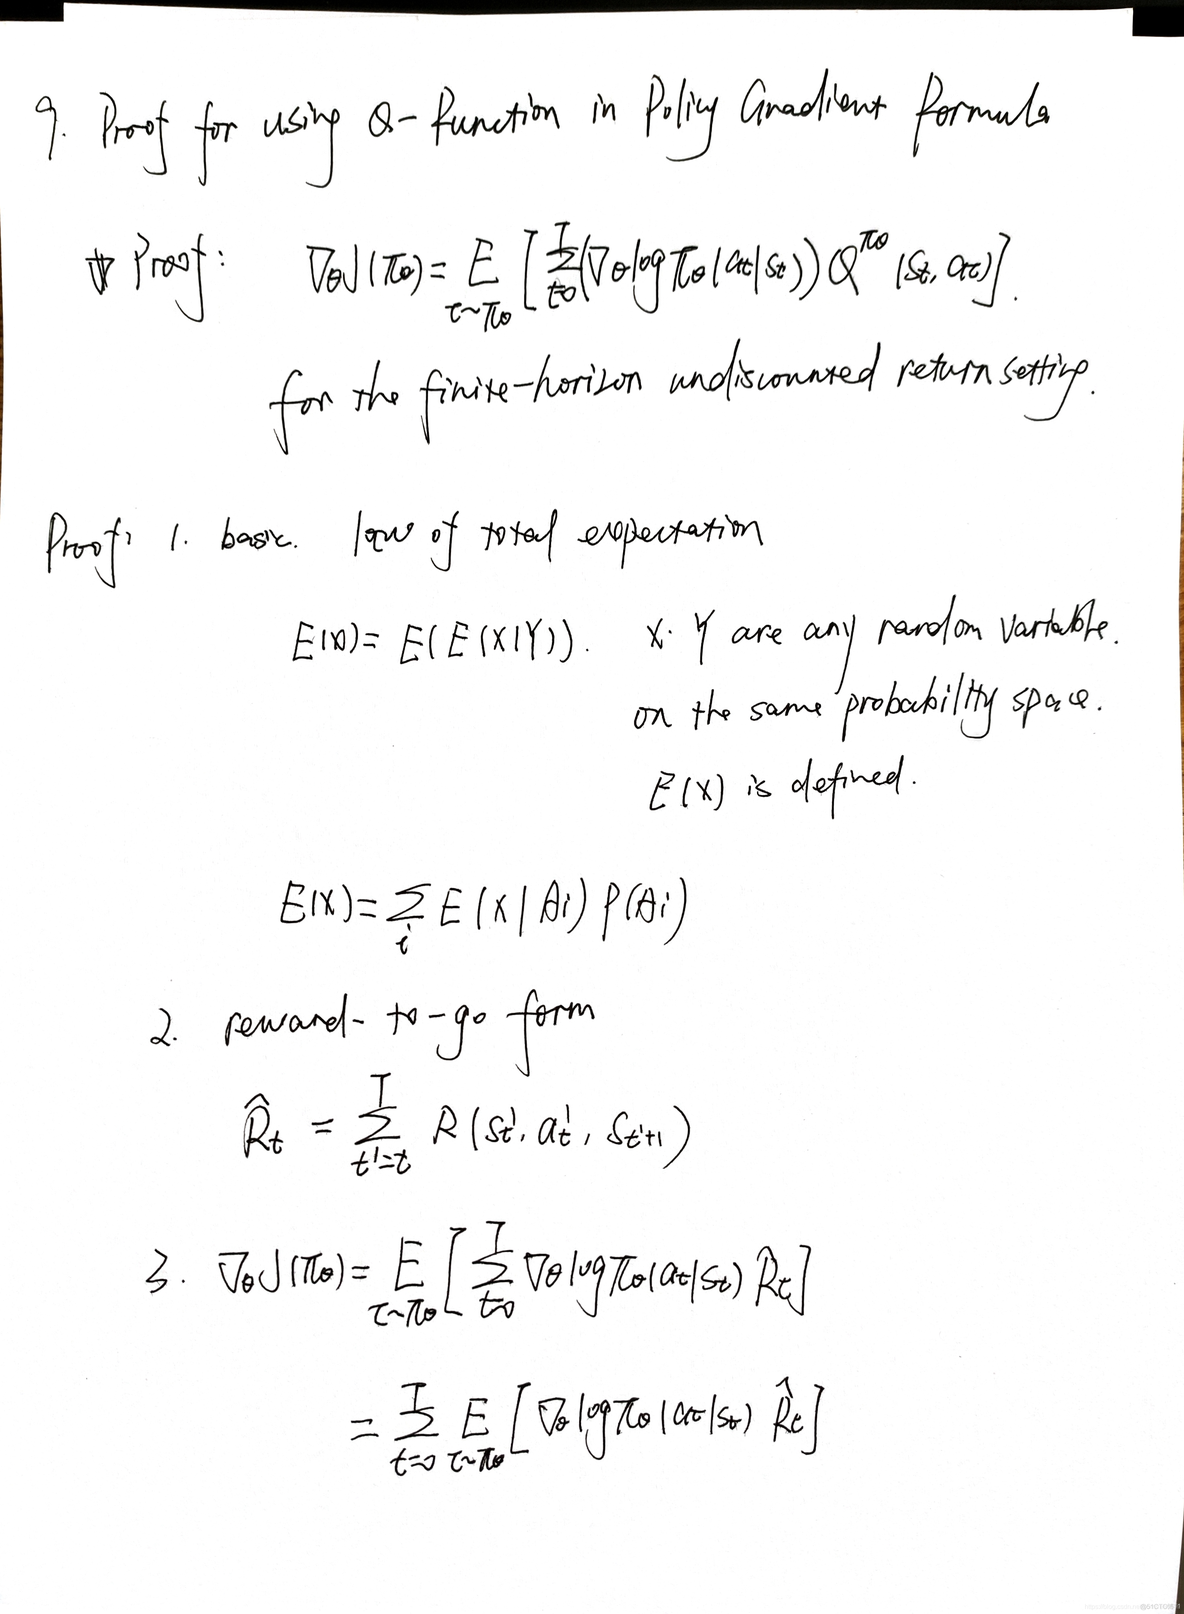 9. Proof for using Q-function in Policy Gradient formula
Proof: ∇θJ(πθ) = E τ~πθ [ Σ t=0 T (∇θ log πθ(at|st)) Q^πθ (st, at) ].
for the finite-horizon undiscounted return setting.
Proof: 1. basic. law of total expectation
E(X) = E(E(X|Y)). X. Y are any random variable.
on the same probability space.
E(X) is defined.
E(X) = Σ i E(X|Ai) P(Ai)
2. reward-to-go form
R̂t = Σ t'=t T R(st', at', st'+1)
3. ∇θJ(πθ) = E τ~πθ [ Σ t=0 T ∇θ log πθ(at|st) R̂t ]
= Σ t=0 T E τ~πθ [ ∇θ log πθ(at|st) R̂t ]